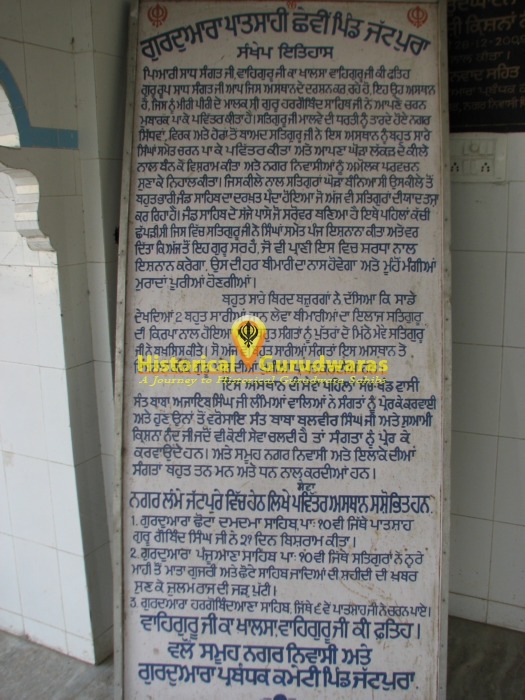 ਗੁਰਦੁਆਰਾ ਪਾਤਸਾਹੀ ਛੇਵੀਂ ਪਿੰਡ ਜੱਟਪੁਰਾ
ਸੰਖੇਪ ਇਤਿਹਾਸ
ਪਿਆਰੀ ਸਾਧ ਸੰਗਤ ਜੀ, ਵਾਹਿਗੁਰੂ ਜੀ ਕਾ ਖਾਲਸਾ ਵਾਹਿਗੁਰੂ ਜੀ ਕੀ ਫਤਿਹ
ਗੁਰੂ ਰੂਪ ਸਾਧ ਸੰਗਤ ਜੀ ਆਪ ਜਿਸ ਅਸਥਾਨ ਦੇ ਦਰਸਨ ਕਰ ਰਹੇ ਹੋ, ਇਹ ਉਹ ਅਸਥਾਨ
ਹੈ, ਜਿਸ ਨੂੰ ਮੀਰੀ ਪੀਰੀ ਦੇ ਮਾਲਕ ਸ੍ਰੀ ਗੁਰੂ ਹਰਗੋਬਿੰਦ ਸਾਹਿਬ ਜੀ ਨੇ ਆਪਣੇ ਚਰਨ
ਮੁਬਾਰਕ ਪਾ ਕੇ ਪਵਿੱਤਰ ਕੀਤਾ ਹੈ। ਸਤਿਗੁਰੂ ਜੀ ਮਾਲਵੇ ਦੀ ਧਰਤੀ ਨੂੰ ਤਾਰਦੇ ਹੋਏ ਨਗਰ
ਸਿੱਧਵਾਂ, ਵਿਰਕ ਅਤੇ ਹੇਰਾਂ ਤੋਂ ਬਾਅਦ ਸਤਿਗੁਰੂ ਜੀ ਨੇ ਇਸ ਅਸਥਾਨ ਨੂੰ ਬਹੁਤ ਸਾਰੇ
ਸਿੰਘਾਂ ਸਮੇਤ ਚਰਨ ਪਾ ਕੇ ਪਵਿੱਤਰ ਕੀਤਾ ਅਤੇ ਆਪਣਾ ਘੋੜਾ ਲੱਕੜ ਦੇ ਕੀਲੇ
ਨਾਲ ਬੰਨ ਕੇ ਵਿਸ਼ਰਾਮ ਕੀਤਾ ਅਤੇ ਨਗਰ ਨਿਵਾਸੀਆਂ ਨੂੰ ਅਮੋਲਕ ਪ੍ਰਵਚਨ
ਸੁਣਾ ਕੇ ਨਿਹਾਲ ਕੀਤਾ। ਜਿਸ ਕੀਲੇ ਨਾਲ ਸਤਿਗੁਰਾਂ ਘੋੜਾ ਬੰਨਿਆ ਸੀ ਉਸ ਕੀਲੇ ਤੋਂ
ਬਹੁਤ ਭਾਰੀ ਜੰਡ ਸਾਹਿਬ ਦਾ ਦਰਖਤ ਪੈਦਾ ਹੋਇਆ ਜੋ ਅੱਜ ਵੀ ਸਤਿਗੁਰਾਂ ਦੀ ਯਾਦ ਤਾਜ਼ਾ
ਕਰ ਰਿਹਾ ਹੈ। ਜੰਡ ਸਾਹਿਬ ਦੇ ਸੱਜੇ ਪਾਸੇ ਜੋ ਸਰੋਵਰ ਬਣਿਆ ਹੈ ਇਥੇ ਪਹਿਲਾਂ ਕੱਚੀ
ਛੱਪੜੀ ਸੀ ਜਿਸ ਵਿੱਚ ਸਤਿਗੁਰੂ ਜੀ ਨੇ ਸਿੰਘਾਂ ਸਮੇਤ ਪੰਜ ਇਸ਼ਨਾਨ ਕੀਤਾ ਅਤੇ ਵਰ
ਦਿੱਤਾ ਕਿ ਅੱਜ ਤੋਂ ਇਹ ਗੁਰੂ ਸਰ ਹੈ, ਜੋ ਵੀ ਪ੍ਰਾਣੀ ਇਸ ਵਿਚ ਸਰਧਾ ਨਾਲ
ਇਸ਼ਨਾਨ ਕਰੇਗਾ, ਉਸ ਦੀ ਹਰ ਬੀਮਾਰੀ ਦਾ ਨਾਸ ਹੋਵੇਗਾ ਅਤੇ ਮੂੰਹੋਂ ਮੰਗੀਆਂ
ਮੁਰਾਦਾਂ ਪੂਰੀਆਂ ਹੋਣਗੀਆਂ।
ਬਹੁਤ ਸਾਰੇ ਬਿਰਧ ਬਜ਼ੁਰਗਾਂ ਨੇ ਦੱਸਿਆ ਕਿ ਸਾਡੇ
ਦੇਖਦਿਆਂ 2 ਬਹੁਤ ਸਾਰੀਆਂ ਲੇਵਾ ਬੀਮਾਰੀਆਂ ਦਾ ਇਲਾਜ ਸਤਿਗੁਰੂ
ਦੀ ਕਿਰਪਾ ਨਾਲ ਹੋਇਆ ਸੰਗਤਾਂ ਨੂੰ ਪੁੱਤਰਾਂ ਦੇ ਮਿੱਠੇ ਮੇਵੇ ਸਤਿਗੁਰੂ
ਜੀ ਨੇ ਬਖਸਿਸ ਕੀਤੇ। ਸੋ ਅੱਜ ਸਾਰੀਆਂ ਸੰਗਤਾਂ ਇਸ ਅਸਥਾਨ ਤੋਂ
Historical Gurudwaras
A Journey to Historical Gurudwara Sahibs
ਇਸ ਅਸਥਾਨ ਦੀ ਸੇਵਾ ਪਹਿਲਾਂ ਸੱਚ ਖੰਡ ਵਾਸੀ
ਸੰਤ ਬਾਬਾ ਅਜਾਇਬ ਸਿੰਘ ਜੀ ਲੰਮਿਆਂ ਵਾਲਿਆਂ ਨੇ ਸੰਗਤਾਂ ਨੂੰ ਪ੍ਰੇਰ ਕੇ ਕਰਵਾਈ
ਅਤੇ ਹੁਣ ਉਨਾਂ ਤੋਂ ਵਰੋਸਾਏ ਸੰਤ ਬਾਬਾ ਬਲਵੀਰ ਸਿੰਘ ਜੀ ਅਤੇ ਸੁਆਮੀ
ਕਿਸ਼ਨਾ ਨੰਦ ਜੀ ਜਦੋਂ ਵੀ ਕੋਈ ਸੇਵਾ ਚਲਦੀ ਹੈ ਤਾਂ ਸੰਗਤਾਂ ਨੂੰ ਪ੍ਰੇਰ ਕੇ
ਕਰਵਾਉਂਦੇ ਹਨ। ਅਤੇ ਸਮੂਹ ਨਗਰ ਨਿਵਾਸੀ ਅਤੇ ਇਲਾਕੇ ਦੀਆਂ
ਸੰਗਤਾਂ ਬਹੁਤ ਤਨ ਮਨ ਅਤੇ ਧਨ ਨਾਲ ਕਰਦੀਆਂ ਹਨ।
ਸੇਵਾ
ਨਗਰ ਲੰਮੇ ਜੱਟਪੁਰੇ ਵਿੱਚ ਹੇਠ ਲਿਖੇ ਪਵਿੱਤਰ ਅਸਥਾਨ ਸੁਸ਼ੋਭਿਤ ਹਨ
1. ਗੁਰਦੁਆਰਾ ਛੋਟਾ ਦਮਦਮਾ ਸਾਹਿਬ, ਪਾ: ੧੦ਵੀਂ ਜਿੱਥੇ ਪਾਤਸ਼ਾਹ
ਗੁਰੂ ਗੋਬਿੰਦ ਸਿੰਘ ਜੀ ਨੇ 21 ਦਿਨ ਬਿਸ਼ਰਾਮ ਕੀਤਾ।
2. ਗੁਰਦੁਆਰਾ ਪੰਜੂਆਣਾ ਸਾਹਿਬ ਪਾ: ੧੦ਵੀਂ ਜਿੱਥੇ ਸਤਿਗੁਰਾਂ ਨੇ ਨੂਰੇ
ਮਾਹੀ ਤੋਂ ਮਾਤਾ ਗੁਜਰੀ ਅਤੇ ਛੋਟੇ ਸਾਹਿਬਜਾਦਿਆਂ ਦੀ ਸ਼ਹੀਦੀ ਦੀ ਖ਼ਬਰ
ਸੁਣ ਕੇ ਜ਼ੁਲਮ ਰਾਜ ਦੀ ਜੜ੍ਹ ਪੁੱਟੀ।
3. ਗੁਰਦੁਆਰਾ ਹਰਗੋਬਿੰਦਆਣਾ ਸਾਹਿਬ, ਜਿੱਥੇ ੬ਵੇਂ ਪਾਤਸ਼ਾਹ ਜੀ ਨੇ ਚਰਨ ਪਾਏ।
ਵਾਹਿਗੁਰੂ ਜੀ ਕਾ ਖਾਲਸਾ, ਵਾਹਿਗੁਰੂ ਜੀ ਕੀ ਫ਼ਤਿਹ।
ਵਲੋਂ ਸਮੂਹ ਨਗਰ ਨਿਵਾਸੀ ਅਤੇ
ਗੁਰਦੁਆਰਾ ਪ੍ਰਬੰਧਕ ਕਮੇਟੀ ਪਿੰਡ ਜੱਟਪੁਰਾ